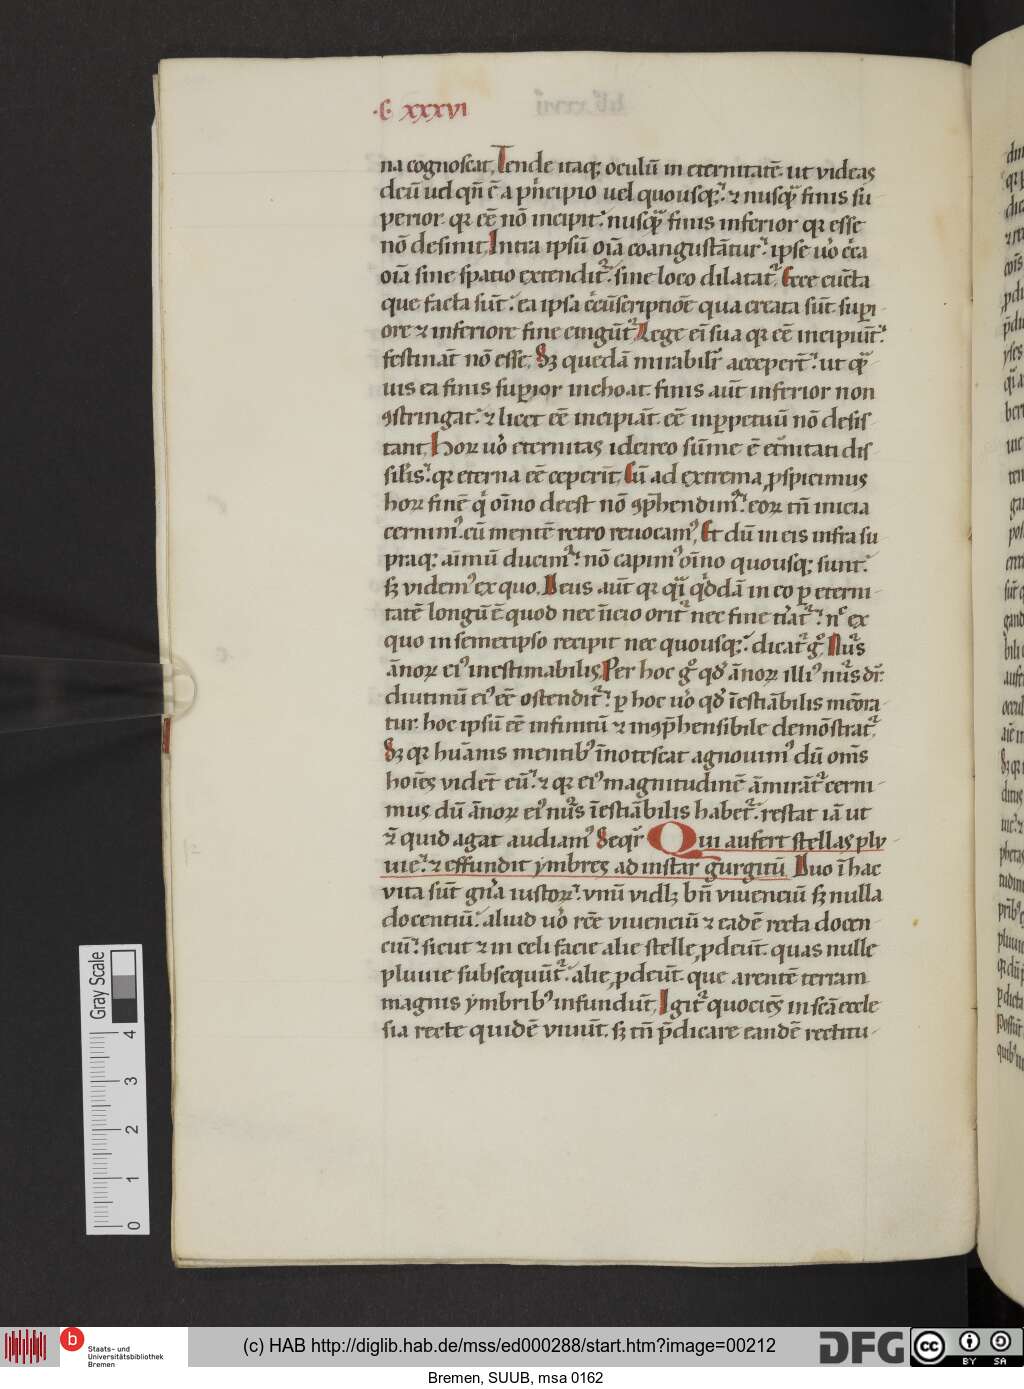 ·C· xxxvi
na cognoscat. Tende itaq; oculū in eternitatē. ut videas
deū uel qn̄ ē a pncipio uel quousq;. ⁊ nusq̄ finis su
perior. qr eē nō incipit. nusq̄ finis inferior qr esse
nō desinit. Intra ipsū oīa coangustātur. ipse uo ccā
oīa sine spatio extendit. sine loco dilatat. Ecce cūcta
que facta sūt. ea ipsa ccūscriptiōe qua creata sūt. supi
ore ⁊ inferiore fine cingūt. Lege ei sua qr eē incipiūt.
festināt nō esse. Sz quedā mirabilr accepert. ut q̄
uis ea finis supior inchoat. finis aūt inferior non
ꝯstringat. ⁊ licet eē incipiāt. eē inꝑpetuū nō desis
tant. Hoꝝ uo eternitas idcirco sūme ē etnitati dis
silis. qr eterna eē ceperīt. Cū ad extrema ꝓspicimus
hoꝝ finē q oīno deest nō ꝯp̄hendimꝰ. eoꝝ tn̄ inicia
cernimꝰ. cū mentē retro reuocamꝰ. Et dū in eis infra su
praq; aīmū ducimꝰ. nō capimꝰ oīno quousq; sunt.
sz videmꝰ ex quo. Deus aūt qr qi qdā in eo ꝑ eterni
tatē longū ē. quod nec īicio orit nec fine tiat. nc ex
quo in semetipso recipit nec quousq;. dicat g. Nus
ānoꝝ eiꝰ inestimabilis. Per hoc g qd ānoꝝ illiꝰ nus dr.
diutinū eiꝰ eē ostendit. ꝑ hoc uo qd īestiābilis meōra
tur. hoc ipsū eē infinitū ⁊ inꝯp̄hensibile demōstrat.
Sz qr huānis mentibꝰ īnotescat agnouimꝰ dū omīs
hoies videt eū. ⁊ qr eiꝰ magnitudinē āmirāt cerni
mus dū ānoꝝ eiꝰ nus īestiābilis habet. restat iā ut
⁊ quid agat audiamꝰ. Seqr Qui aufert stellas plu
uie. ⁊ effundit ymbres ad instar gurgitū. Duo ī hac
vita sūt gna iustoꝝ. vnū vidlz bn̄ viuenciū sz nulla
docentiū. aliud uo rcē viuenciū ⁊ eadē recta docen
ciū. sicut ⁊ in celi facie alie stelle ꝓdeūt. quas nulle
pluuie subsequūt. alie ꝓdeūt. que arentē terram
magnis ymbribꝰ infundūt. Igit quocies in scā eccle
sia recte quidē viuūt. sz tn̄ p̄dicare eandē rectitu
Gray Scale
4
3
2
1
0
b
Staats- und
Universitätsbibliothek
Bremen
(c) HAB http://diglib.hab.de/mss/ed000288/start.htm?image=00212
DFG
cc
BY SA
Bremen, SUUB, msa 0162